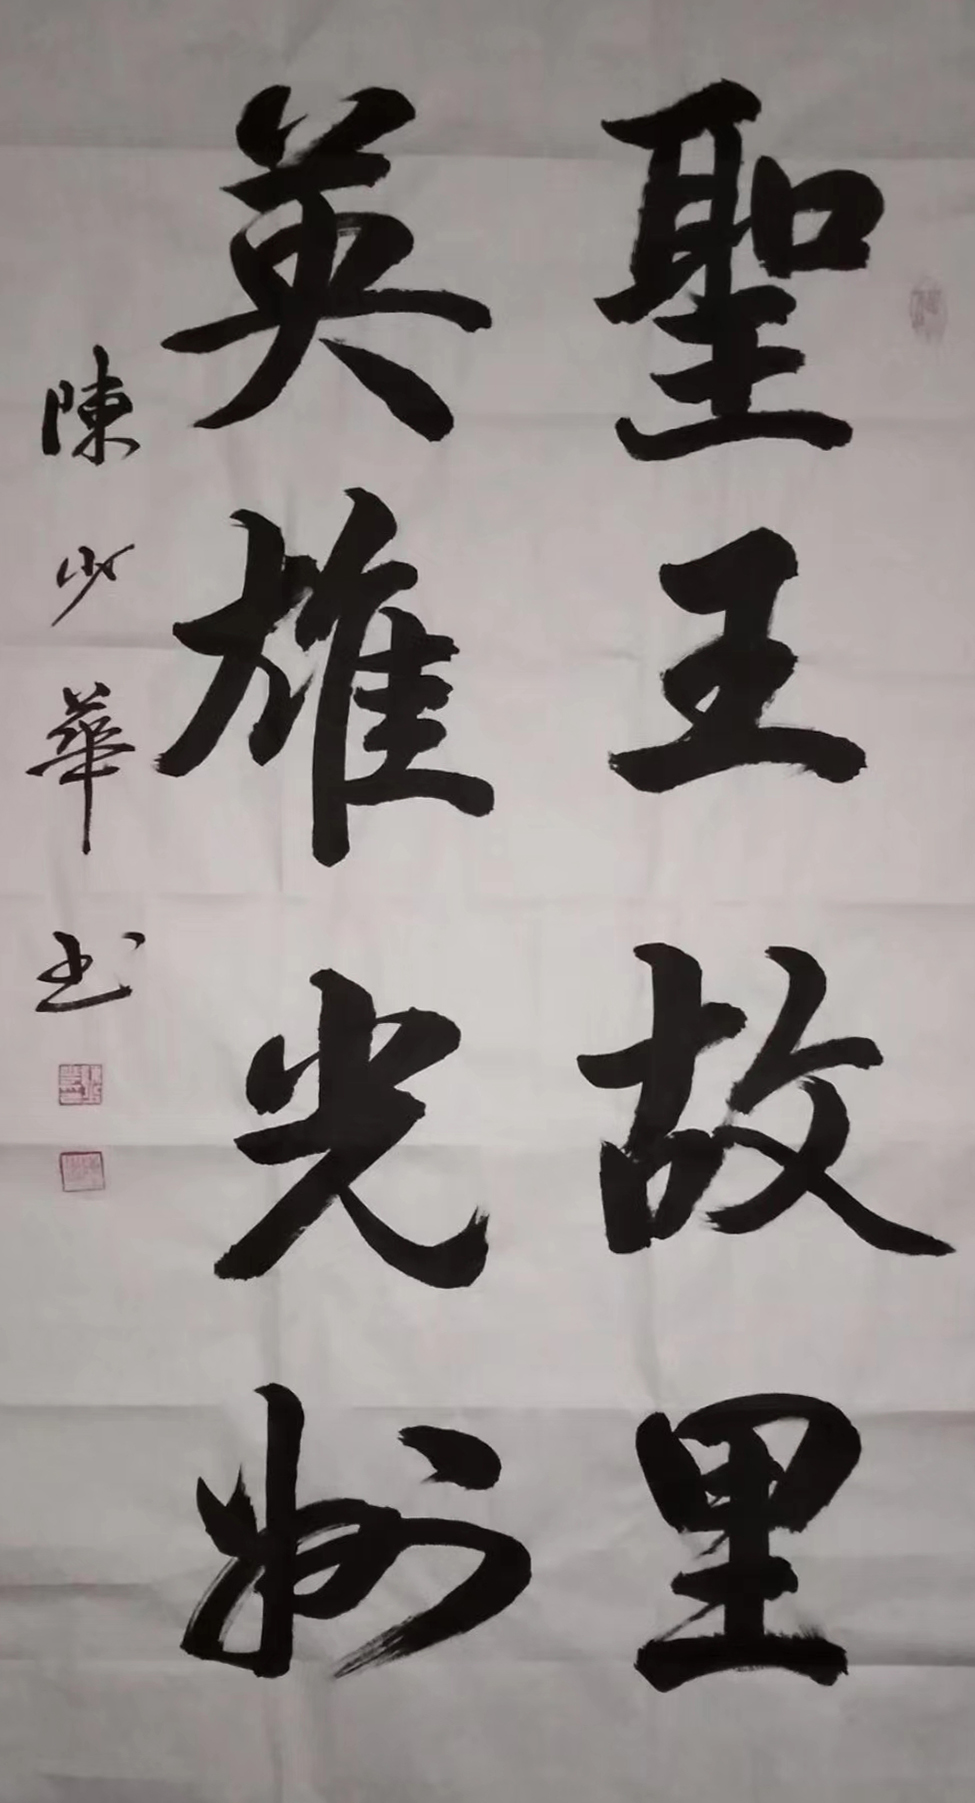 聖王故里
英雄光州
陳少華书